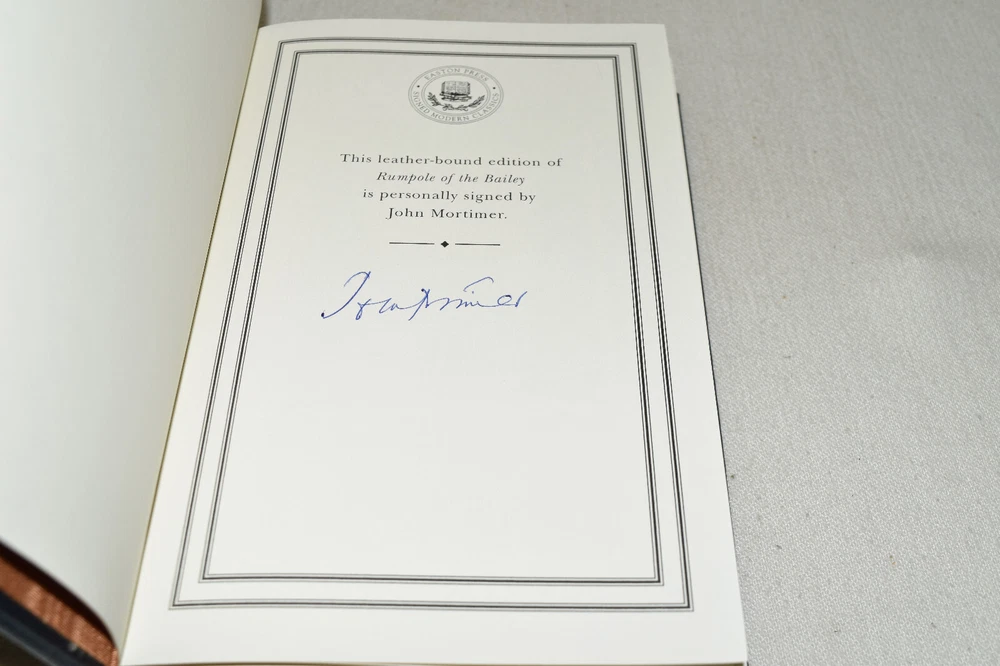 EASTON PRESS
SIGNED MODERN CLASSICS
This leather-bound edition of
Rumpole of the Bailey
is personally signed by
John Mortimer.